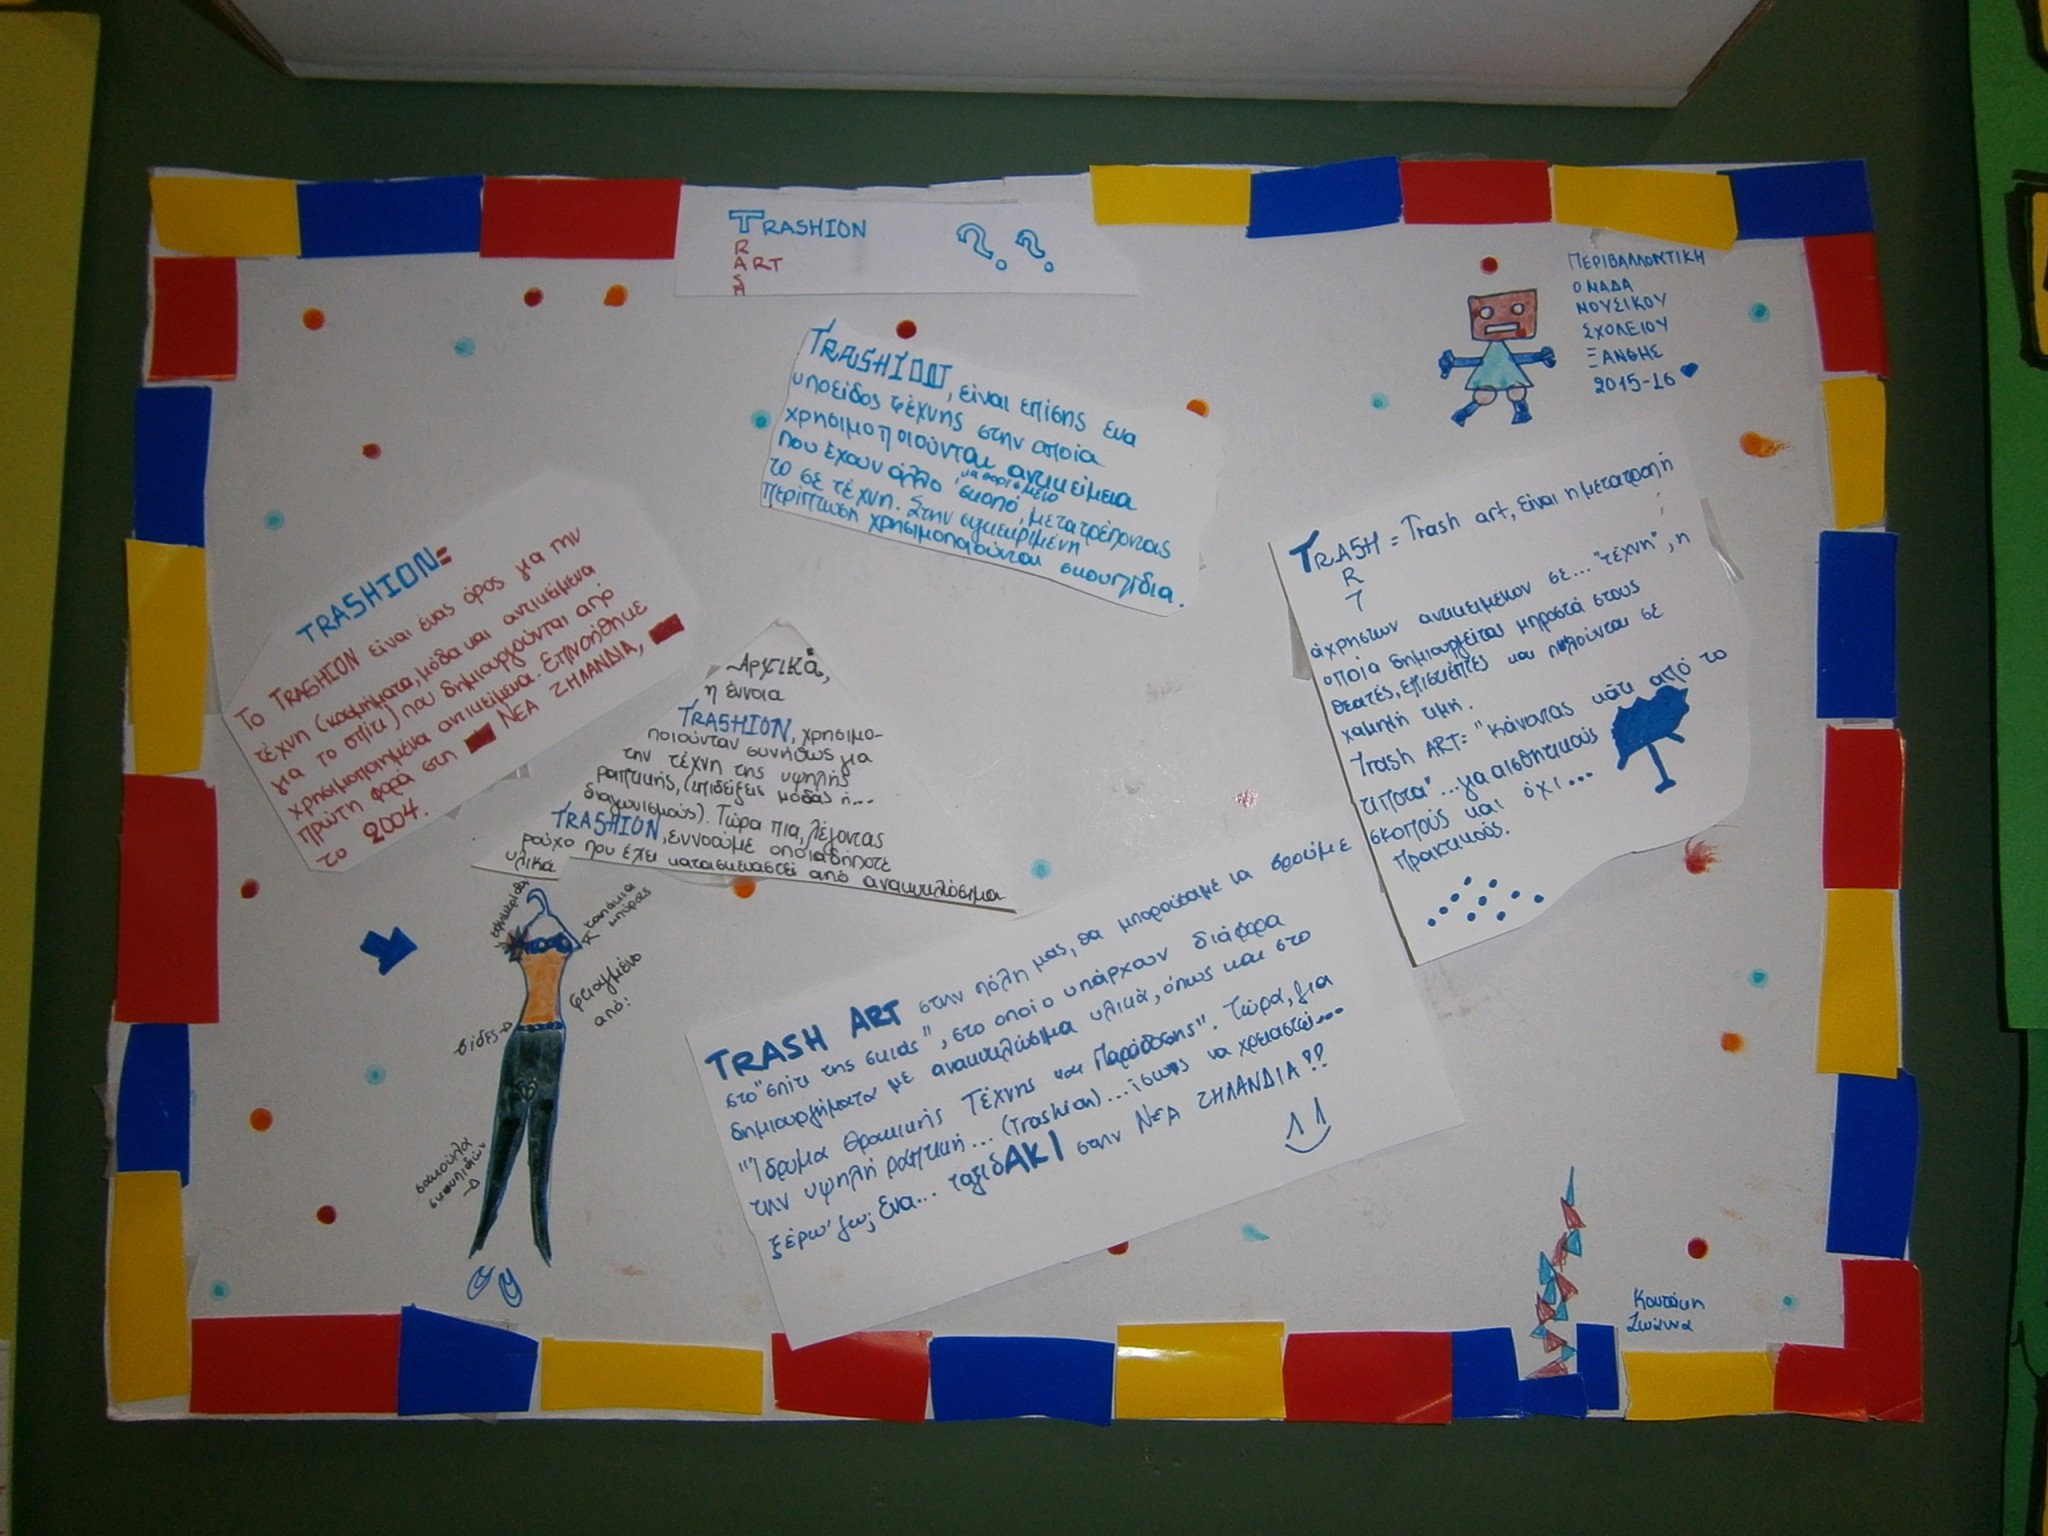 TRASHION
R
ART
S
H
??
ΠΕΡΙΒΑΛΛΟΝΤΙΚΗ
ΟΜΑΔΑ
ΜΟΥΣΙΚΟΥ
ΣΧΟΛΕΙΟΥ
ΞΑΝΘΗΣ
2015-16
TRASHION, είναι επίσης ένα
υποείδος τέχνης στην οποία
χρησιμοποιούνται αντικείμενα
που έχουν άλλο σκοπό, μετατρέποντας
το σε τέχνη. Στην συγκεκριμένη
περίπτωση χρησιμοποιούνται σκουπίδια.
TRASHION:
Το TRASHION είναι ένας όρος για την
τέχνη (κοσμήματα, μόδα και αντικείμενα
για το σπίτι) που δημιουργούνται από
χρησιμοποιημένα αντικείμενα. Επινοήθηκε
πρώτη φορά στη ΝΕΑ ΖΗΛΑΝΔΙΑ,
το 2004.
Αρχικά,
η έννοια
TRASHION, χρησιμο-
ποιούνταν συνήθως για
την τέχνη της υψηλής
ραπτικής, (επιδείξεις μόδας ή...
διαγωνισμούς). Τώρα πια, λέγοντας
TRASHION, εννοούμε οποιαδήποτε
ρούχο που έχει κατασκευαστεί από ανακυκλώσιμα
υλικά.
TRASH = Trash art, είναι η μετατροπή
R
T
άχρηστων αντικειμένων σε... "τέχνη", η
οποία δημιουργείται μπροστά στους
θεατές, επισκέπτες και πωλούνται σε
χαμηλή τιμή.
Trash ART: "Κάνοντας κάτι από το
τίποτα"... για αισθητικούς
σκοπούς και όχι...
πρακτικούς.
καπάκια
μπύρας
φτιαγμένο
από:
σακούλα
σκουπιδιών
TRASH ART στην πόλη μας, θα μπορούσαμε να βρούμε
στο "σπίτι της σκιάς", στο οποίο υπάρχουν διάφορα
δημιουργήματα με ανακυκλώσιμα υλικά, όπως και στο
"Ίδρυμα Θρακικής Τέχνης και Παράδοσης". Τώρα, για
την υψηλή ραπτική... (Trashion)... ίσως να χρειαστεί...
ξέρω 'γω; ένα... ταξιδΑΚΙ στην ΝΕΑ ΖΗΛΑΝΔΙΑ??
Κουτάκη
Ιωάννα